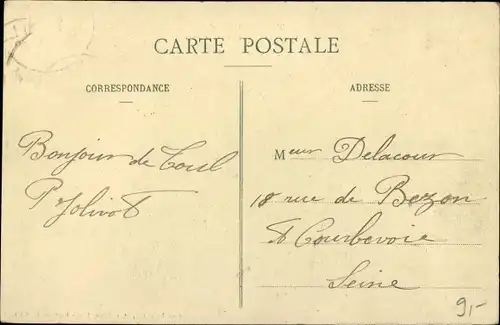 CARTE POSTALE
CORRESPONDANCE
Bonjour de Toul
P Jolivot
ADRESSE
Meur Delacour
18 rue de Bezon
à Courbevoie
Seine
9,-